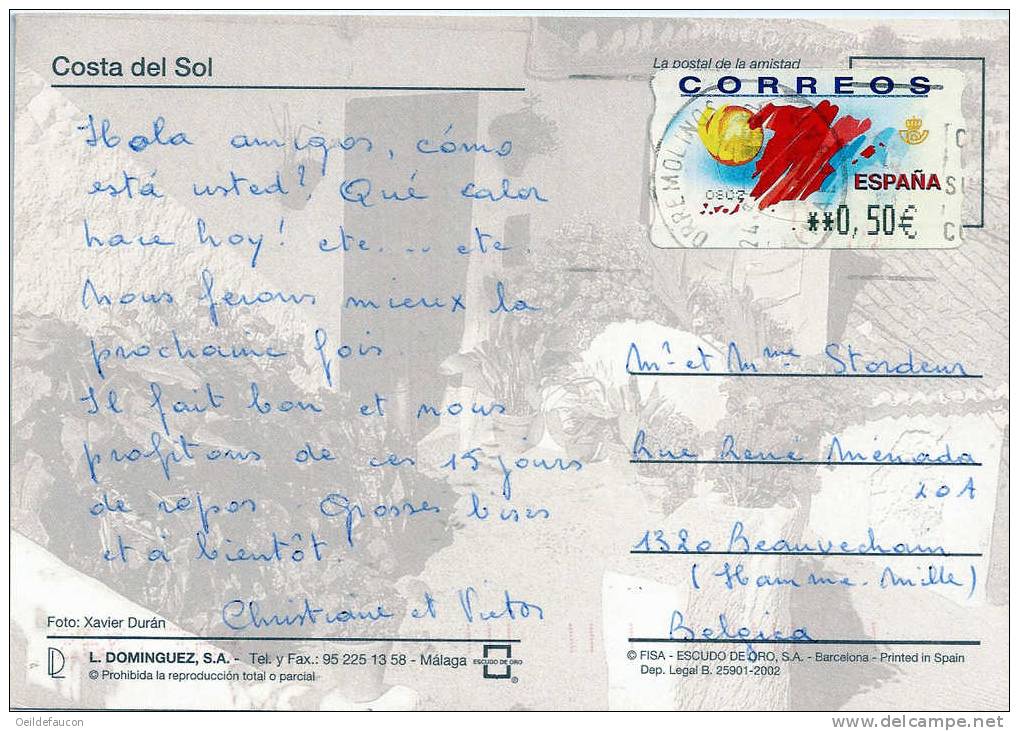 Costa del Sol
La postal de la amistad
CORREOS
ESPAÑA
**0,50€
0802
Hola amigos, cómo
está usted? Qué calor
hace hoy! etc.... etc.
Nous ferons mieux la
prochaine fois.
Il fait bon et nous
profitons de ces 15 jours
de repos. Grosses bises
et à bientôt.
Christiane et Victor
Mr et Mme Stordeur
Rue René Ménada
20A
1320 Beauvechain
(Hamme-Mille)
Belgica
Foto: Xavier Durán
L. DOMINGUEZ, S.A. - Tel. y Fax.: 95 225 13 58 - Málaga
© Prohibida la reproducción total o parcial
ESCUDO DE ORO
®
© FISA - ESCUDO DE ORO, S.A. - Barcelona - Printed in Spain
Dep. Legal B. 25901-2002
Oeildefaucon
www.delcampe.net